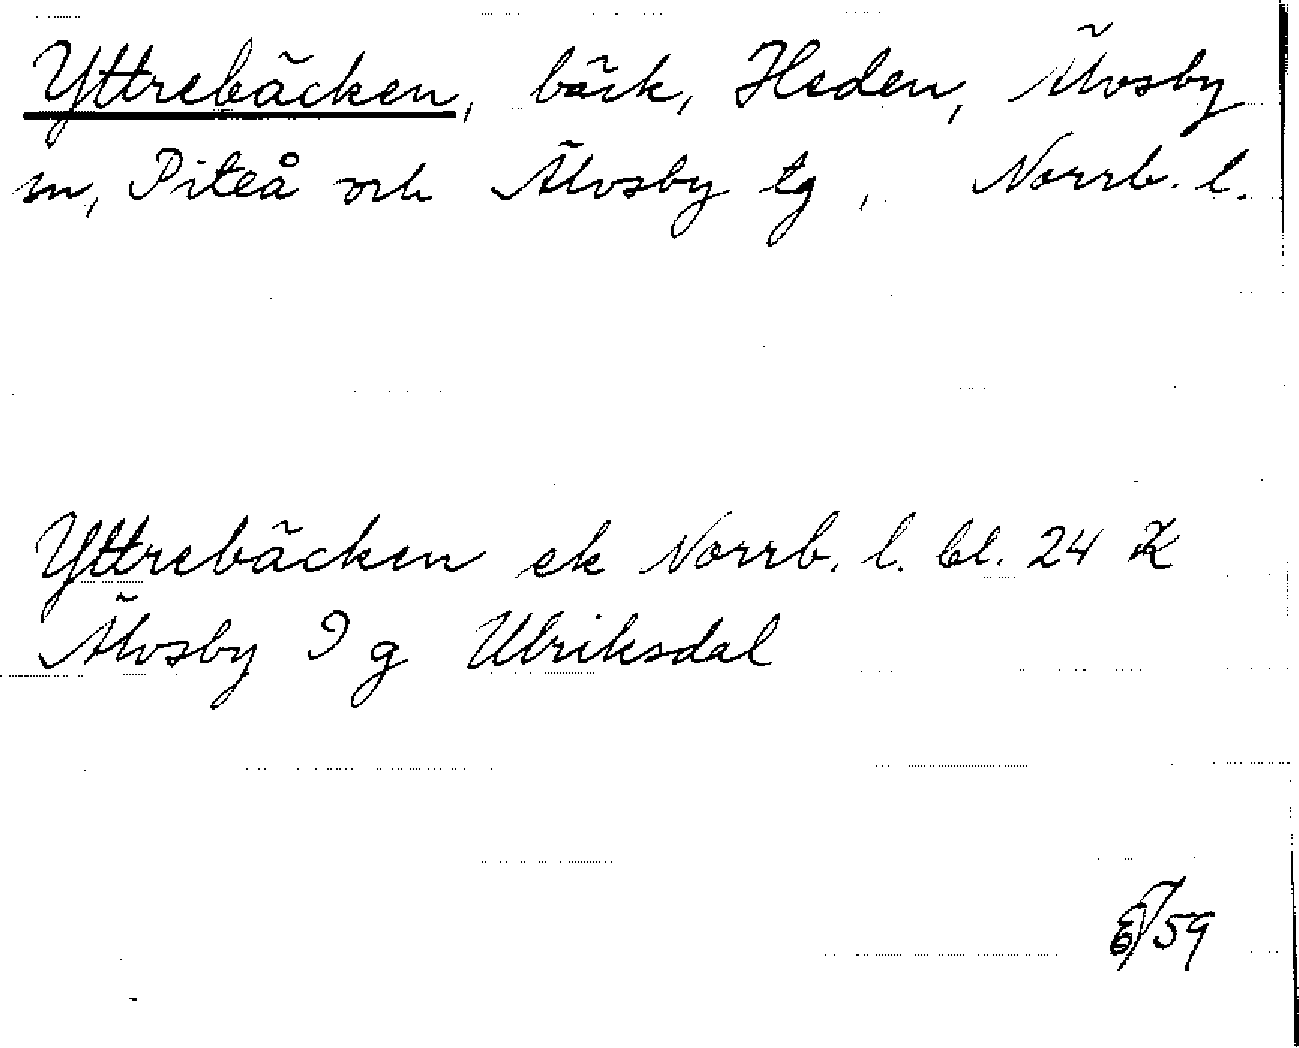 Yttrebäcken, bäck, Heden, Älvsby
sn, Piteå och Älvsby tg, Norrb. l.
Yttrebäcken ek Norrb. l. bl. 24 K
Älvsby 9 g Ulriksdal
/59